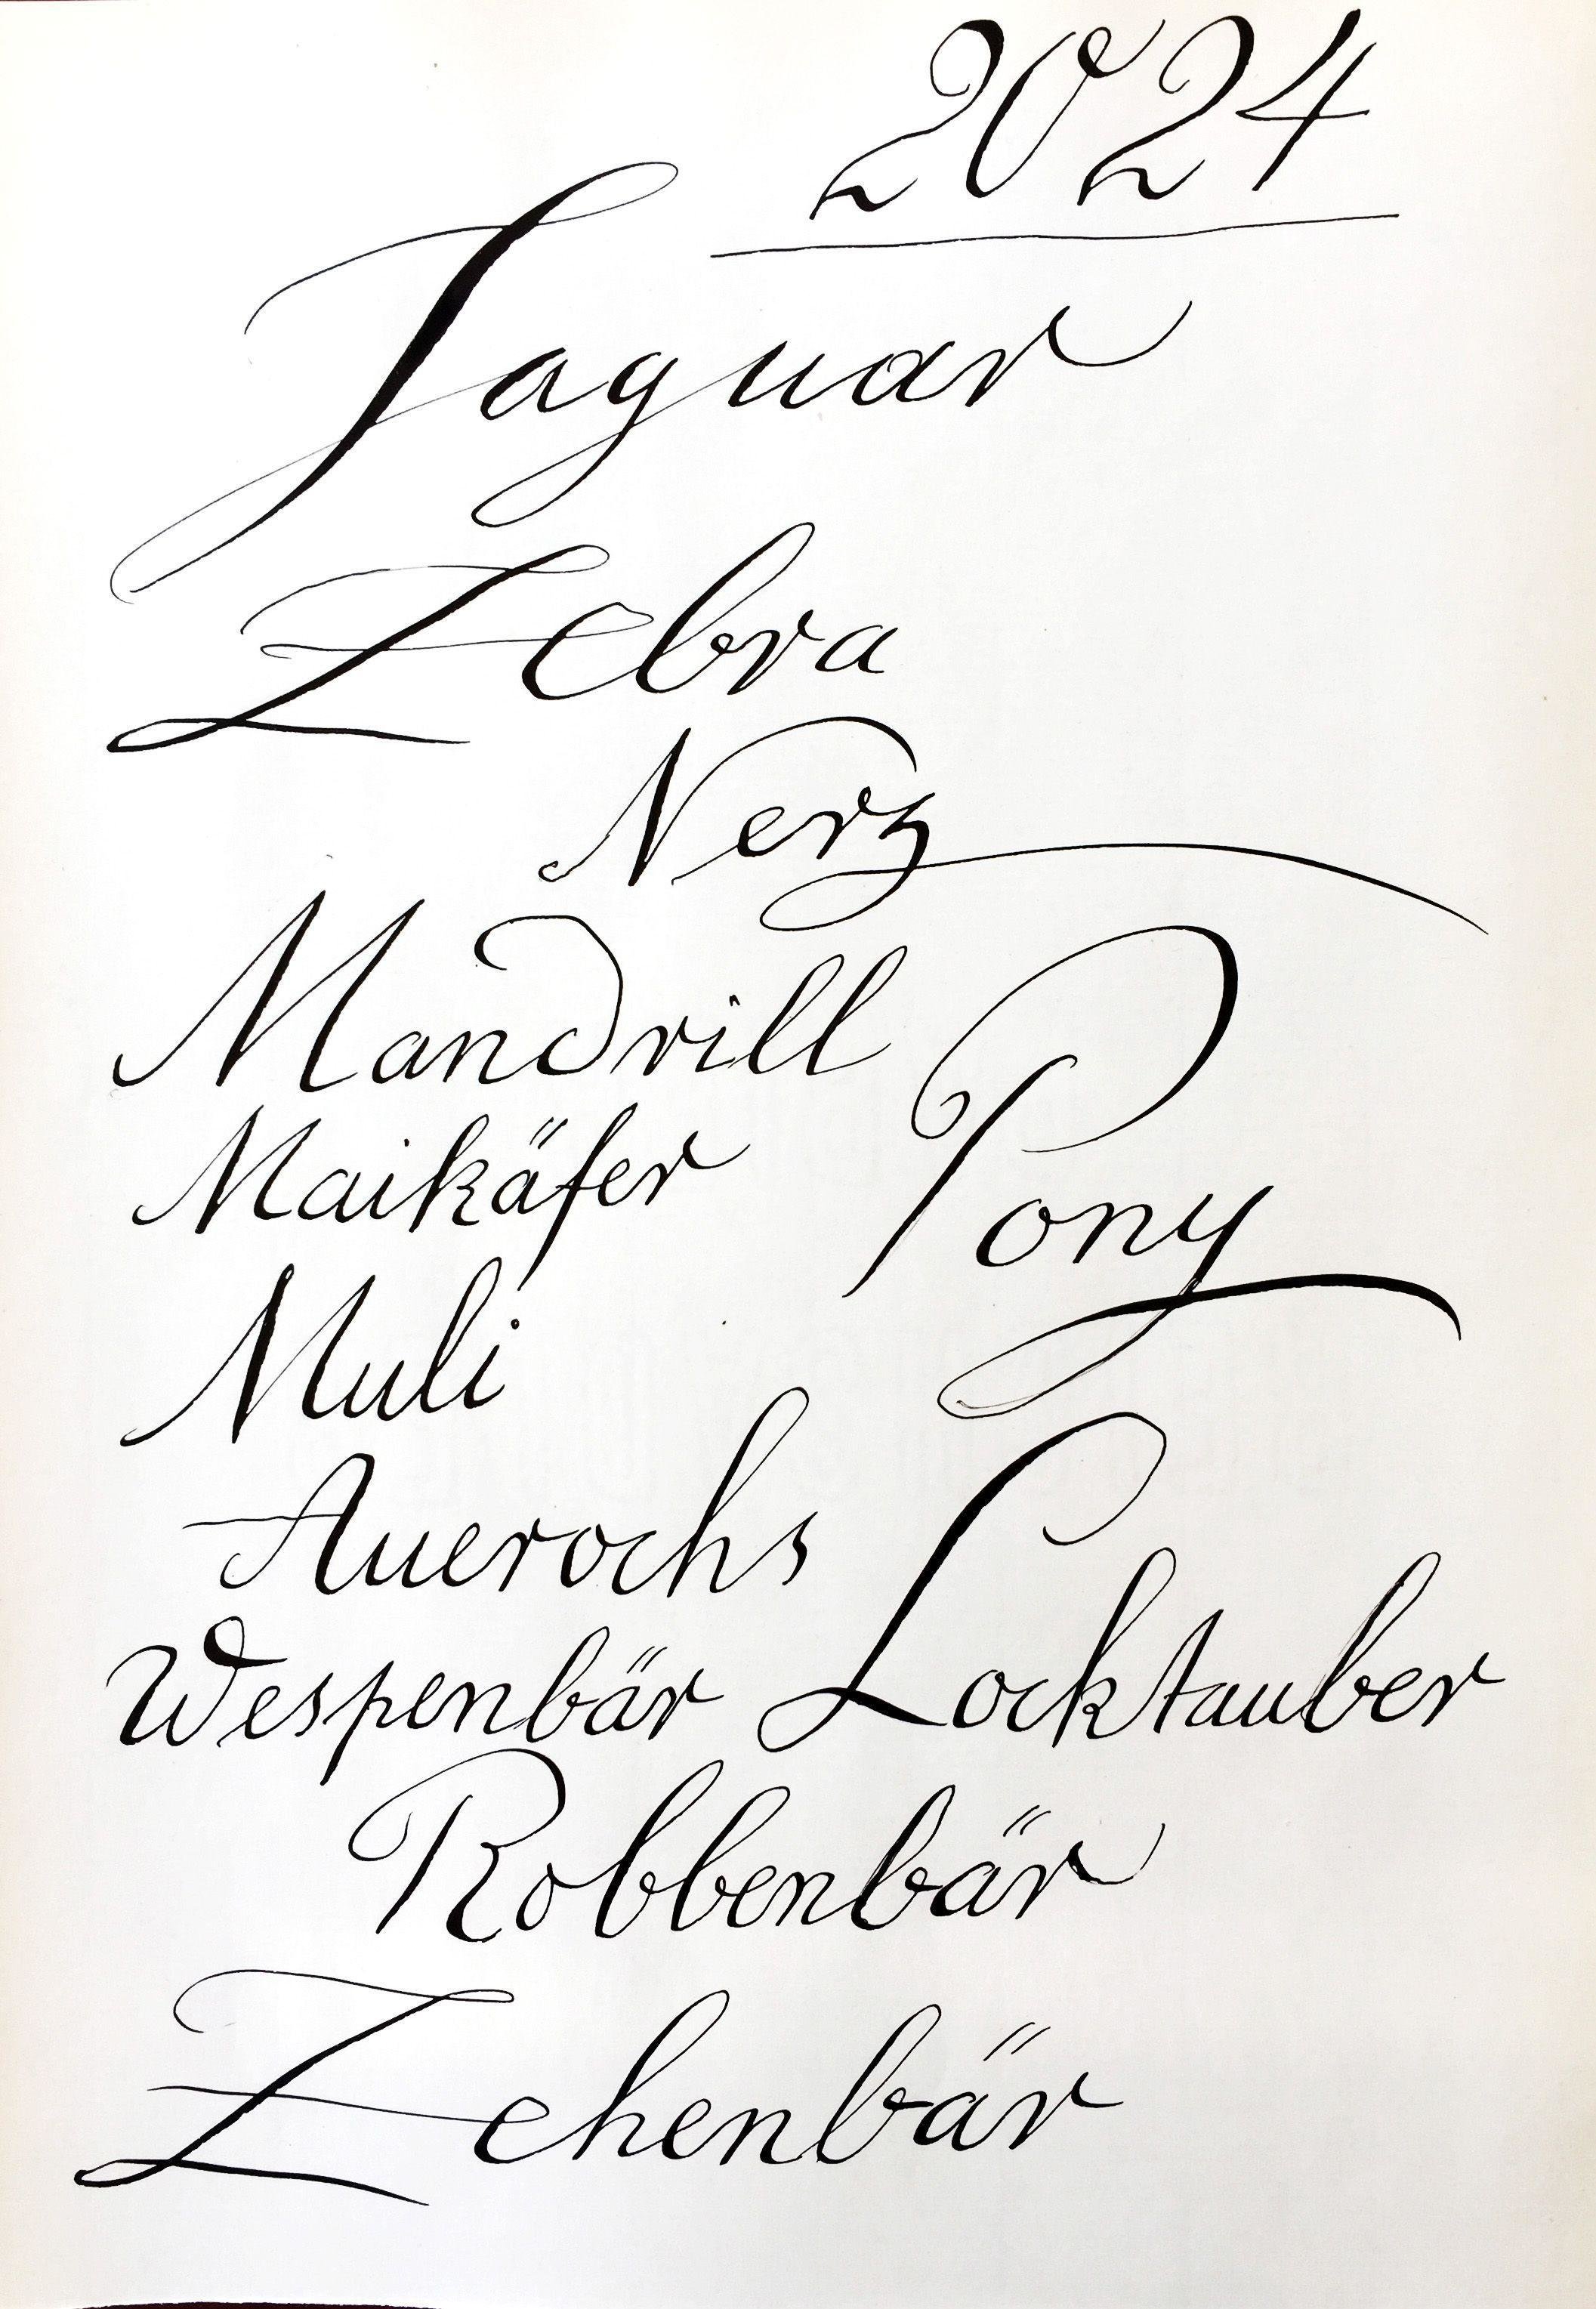 2024
Jaguar
Zebra
Nerz
Mandrill
Pony
Maikäfer
Muli
Auerochs
Wespenbär Locktauber
Robbenbär
Zehenbär